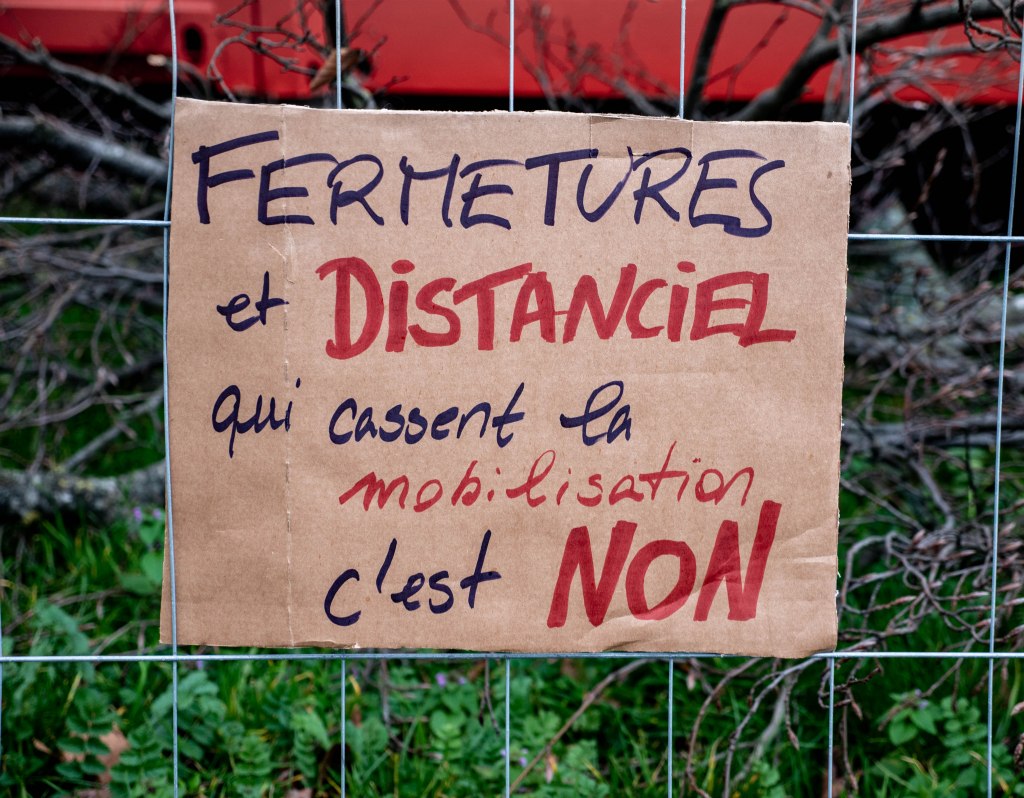 FERMETURES
et DISTANCIEL
qui cassent la
mobilisation
c'est NON